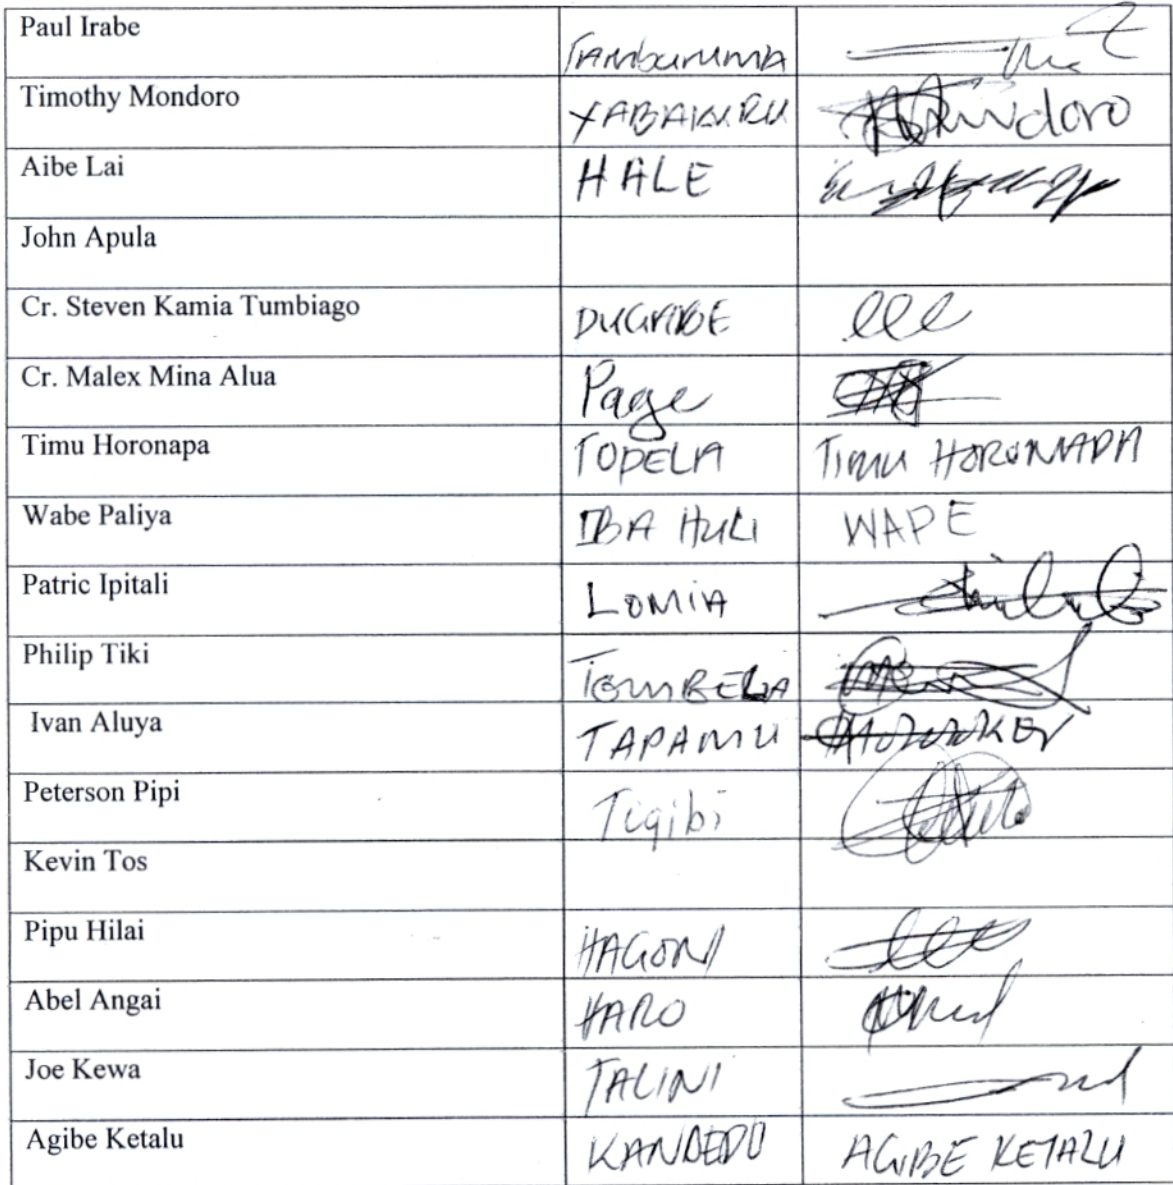 Paul Irabe
Timothy Mondoro YABAKURU
Aibe Lai HALE
John Apula
Cr. Steven Kamia Tumbiago DUGABE lll
Cr. Malex Mina Alua Page
Timu Horonapa TOPELA TIMU HORONAPA
Wabe Paliya IBA HULI WAPE
Patric Ipitali LOMIA
Philip Tiki TOMBELA
Ivan Aluya TAPAMU
Peterson Pipi Tigibi
Kevin Tos
Pipu Hilai HAGONI
Abel Angai HARO
Joe Kewa TALINI
Agibe Ketalu KANDEDO AGIBE KETALU